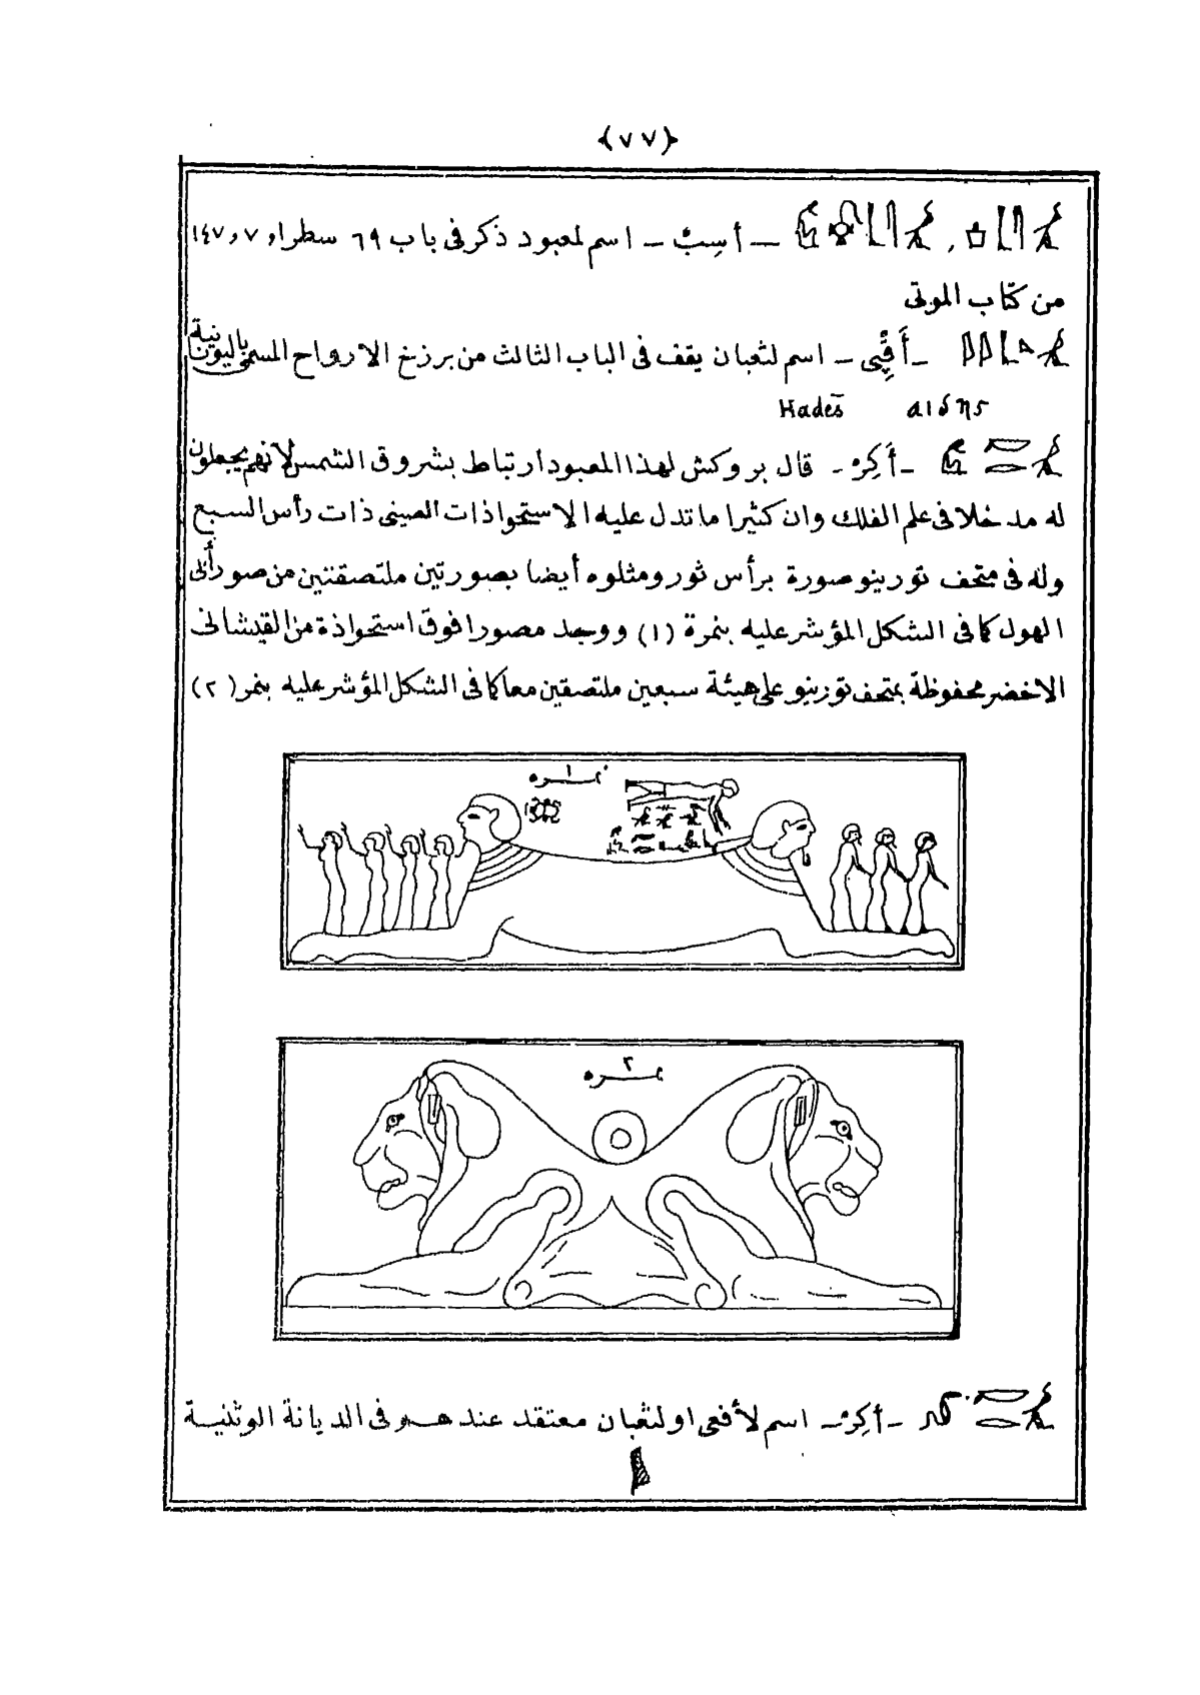 ﴿٧٧﴾
ـ أسِبْ ـ اسم لمعبود ذكر فى باب ٦٩ سطر ١ و ٧ و ١٤٧
من كتاب الموتى
ـ أَقِبِى ـ اسم لثعبان يقف فى الباب الثالث من برزخ الارواح المسمى باليونانية
Hadēs αιδης
ـ أَكِرْ ـ قال بروكش لهذا المعبود ارتباط بشروق الشمس لانهم يجعلون
له مدخلا فى علم الفلك وان كثيرا ما تدل عليه الاستحواذات الصينى ذات رأس السبع
وله فى متحف تورينو صورة برأس ثور ومثلوه أيضا بصورتين ملتصقتين من صور أبى
الهول كما فى الشكل المؤشر عليه بنمرة (١) ووجد مصورا فوق استحواذة من القيشانى
الاخضر محفوظة بمتحف تورينو على هيئة سبعين ملتصقين معا كما فى الشكل المؤشر عليه بنمر (٢)
نمره ١
نمره ٢
ـ أكِرْ ـ اسم لأفعى او لثعبان معتقد عندهم فى الديانة الوثنية